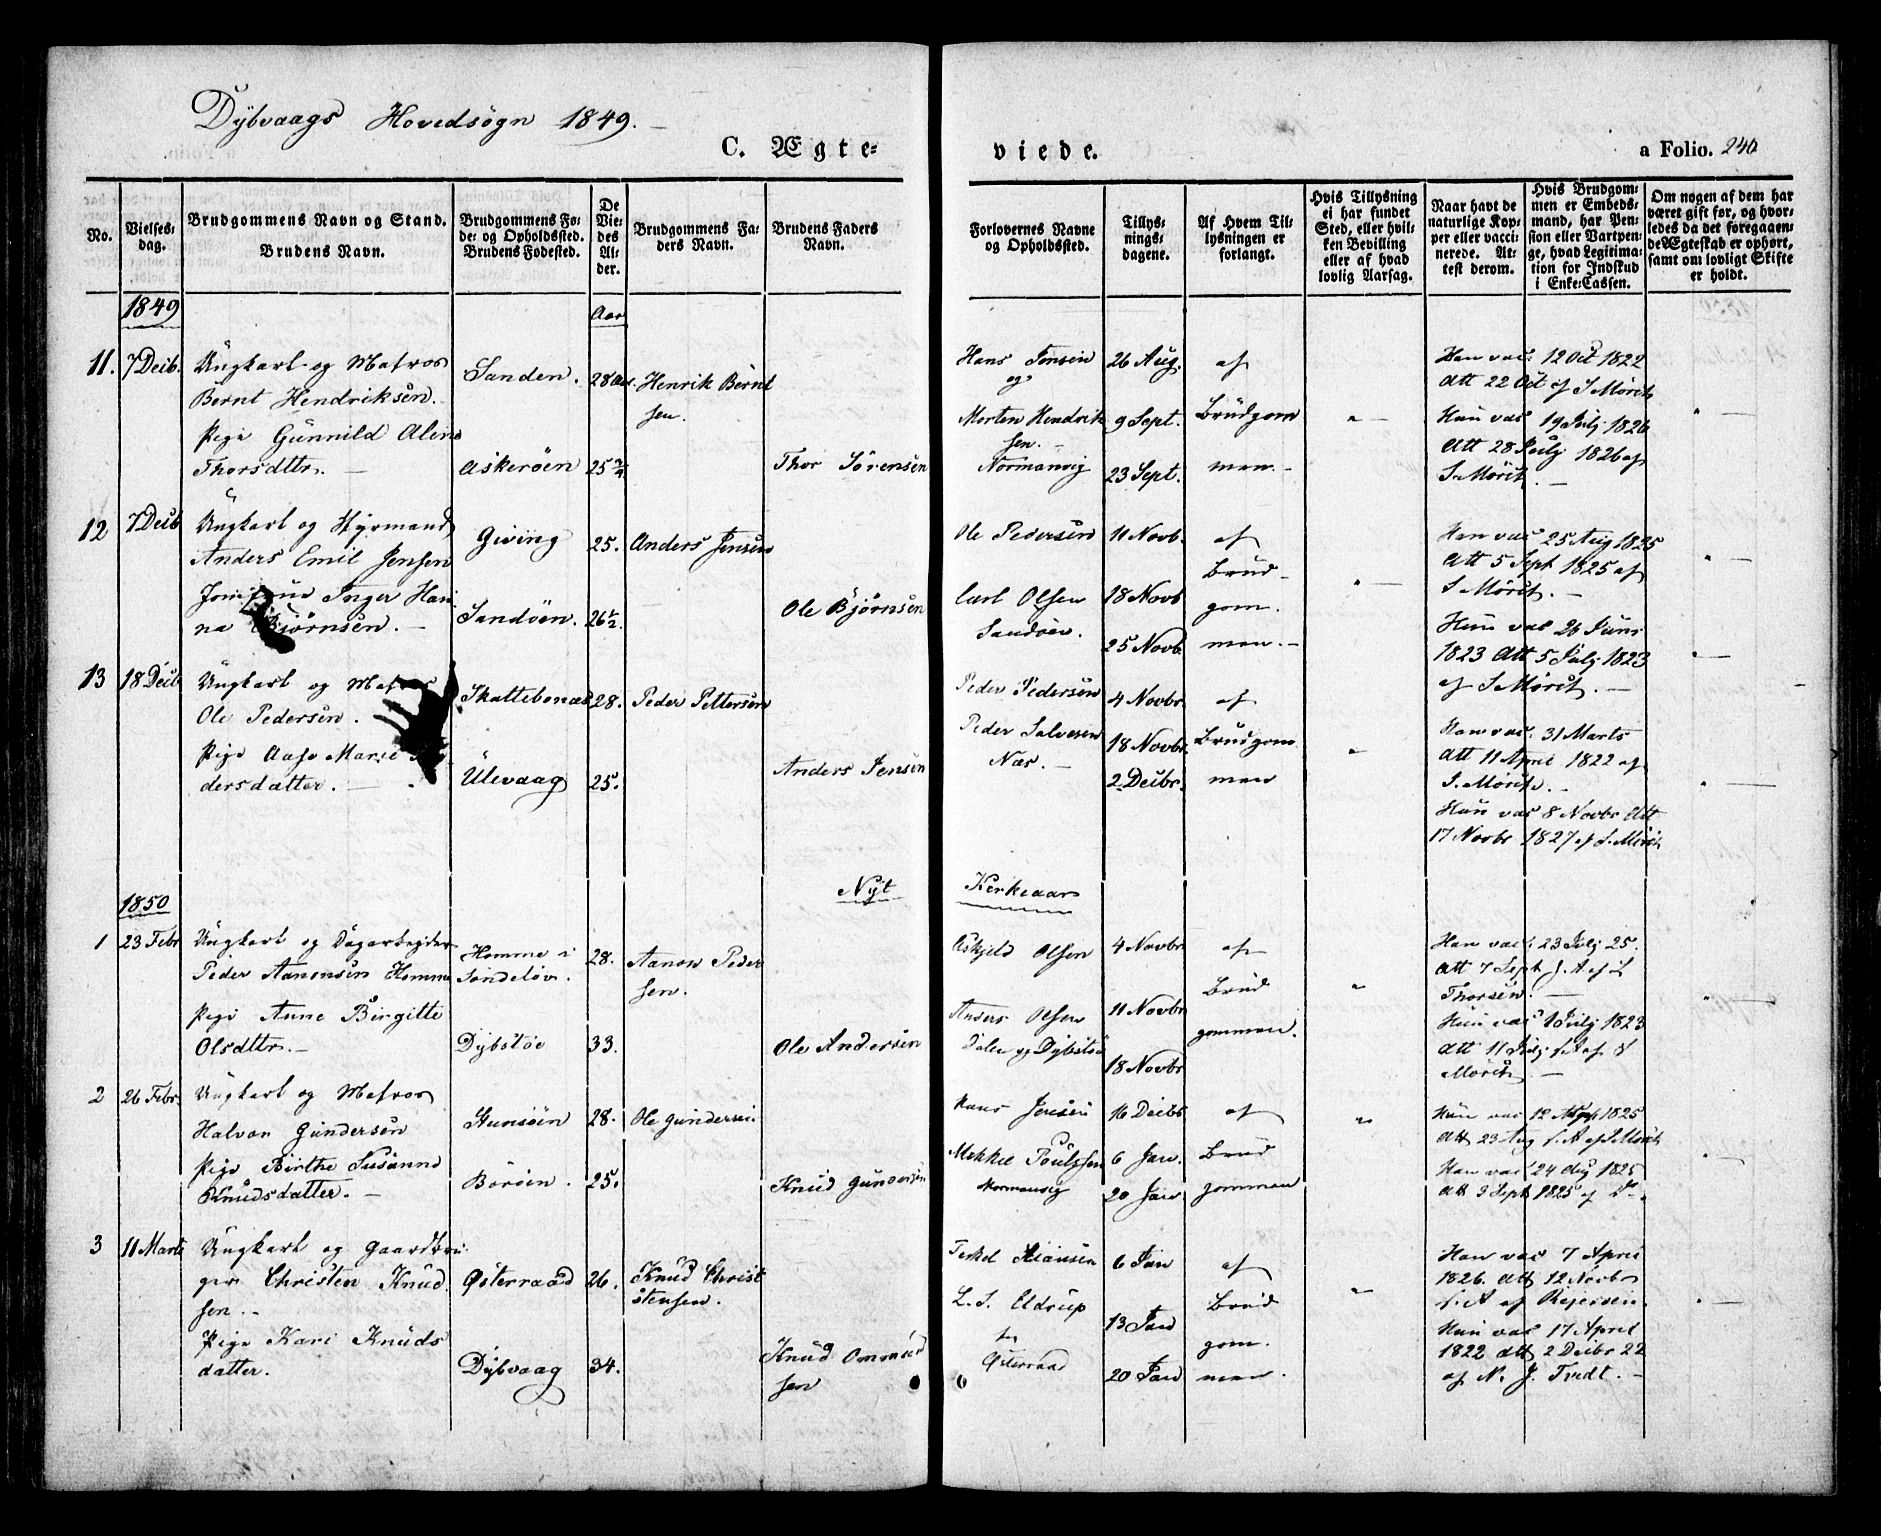 Dybvaags Hovedsogn 1849.
C. Ægte=
viede.
a Folio. 240
No.
Vielses-
dag.
Brudgommens Navn og Stand.
Brudens Navn.
Brudgommens Fø-
de- og Opholdssted.
Brudens Fødested.
De
Vie-
des
Al-
der.
Brudgommens Fa-
ders Navn.
Brudens Faders
Navn.
Forlovernes Navne
og Opholdssted.
Tillys-
nings-
dagene.
Af Hvem Til-
lysningen er
forlangt.
Hvis Tillysning
ei har fundet
Sted, eller hvil-
ken Bevilling
eller af hvad
lovlig Aarsag.
Naar havt de
naturlige Kop-
per eller vacci-
nerede. At-
test derom.
Hvis Brudgom-
men er Embeds-
mand, har Pen-
sion eller Vartpen-
ge, hvad Legitima-
tion for Indskud
i Enke-Cassen.
Om nogen af dem har
været gift før, og hvor-
ledes da det foregaaen-
de Ægteskab er ophørt,
samt om lovligt Skifte
er holdt.
1849
Aar
11. 7 Decb.
Ungkarl og Matros
Bernt Hendriksen.
Pige Gunnild Aline
Thorsdttr. —
Sanden.
Askerøen
28 Aar.
25 3/4
Henrik Bernt
sen.
Thor Sørensen
Hans Jensen
og
Morten Hendrik
sen. —
Normanvig
26 Aug.
9 Sept.
23 Sept.
af
Brudgom
men. —
Han vac. 12 Oct 1822
Att 22 Oct af S Møritz
Hun vac 19 July 1826
Att 28 July 1826 af
S. Møritz. —
12 7 Decb
Ungkarl og Styrmand
Anders Emil Jensen
Jomfrue Inger Han
na Bjørnsen. —
Giving
Sandøen.
25.
26 1/2.
Anders Jensen
Ole Bjørnsen
Ole Pedersen
Carl Olsen
Sandøen.
11 Novb.
18 Novb
25 Novb.
af
Brud-
gom.
men. —
Han vac 25 Aug 1825
Att 5 Sept 1825 af
S Møritz. —
Hun vac 26 Juni
1823 Att 5 July 1823
af S Møritz. —
13 18 Decb
Ungkarl og Matros
Ole Pedersen.
Pige Aase Marie
dersdatter. —
Skattebonæs
Ulevaag
28.
25.
Peder Pettersen
Anders Jensen
Peder Pedersen
Peder Salvesen
Næs. —
4 Novbr.
18 Novbr.
2 Decbr.
af
Brudgom
men
Han vac. 31 Marts
Att 11 April 1822 af
S. Møritz. —
Hun vac 8 Novbr Att
17 Novbr 1827 af S. Møritz
1850
Nyt
Kirkeaar
1 23 Febr
Ungkarl og Dagarbeyder
Peder Aanonsen Homme
Pige Anne Birgitte
Olsdttr. —
Homme i
Søndeløv.
Dybstøe
28.
33.
Aanon Peder
sen.
Ole Andersen
Askjeld Olsen
Anders Olsen
Dalen og Dybstøe
4 Novbr
11 Novbr
18 Novbr
af
Brud
gommen.
Han vac. 23 July 25.
Att 7 Sept s. A af L
Thorsen. —
Hun vac 1 July 1823
Att 11 July s. A af S
Møritz —
2 26 Febr.
Ungkarl og Matros
Halvor Gundersen
Pige Birthe Susanne
Knudsdatter. —
Stensøen
Borøen.
28.
25.
Ole Gundersen
Knud Gundersen
Hans Jensen
Mekkel Poulssen
Normanvig
16 Decbr
6 Jan.
20 Jan
af
Brud
gommen
Hun vac 12 Aug 1825
Att 23 Aug s. A af S. Møritz
Han vac 24 Aug 1825
Att 3 Sept 1825 af D—
3 11 Marts
Ungkarl og Gaardbru
ger Christen Knud
sen. —
Pige Kari Knuds
datter.
Østeraad
Dybvaag
26.
34.
Knud Christ
stensen.
Knud Ommund
sen
Terkel Kiansen
L. S. Eldrup
Østeraad
6 Jan
13 Jan
20 Jan
af
Brud
gom.
men.
Han vac 7 April
1826. Att 12 Novbr
s. A af Reiersen.
Hun vac 17 April
1822 Att 2 Decbr 22
af N. J. Tvedt. —